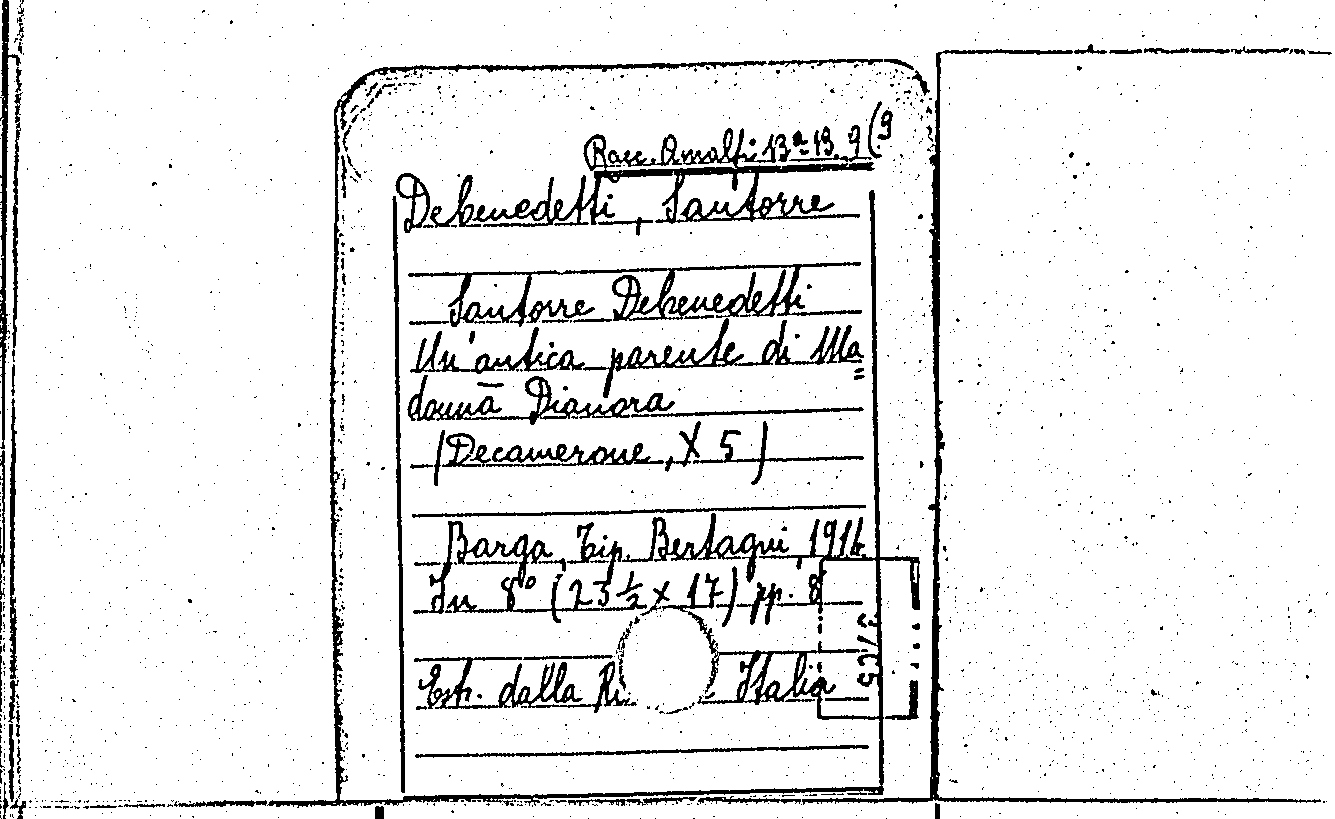 Racc. Amalfi 13ª-13. 9(9
Debenedetti, Santorre
Santorre Debenedetti
Un'antica parente di Ma=
donna Dianora
(Decamerone, X 5)
Barga, Tip. Bertagni, 1916
In 8° (23 ½ x 17) pp. 8
Estr. dalla Italia